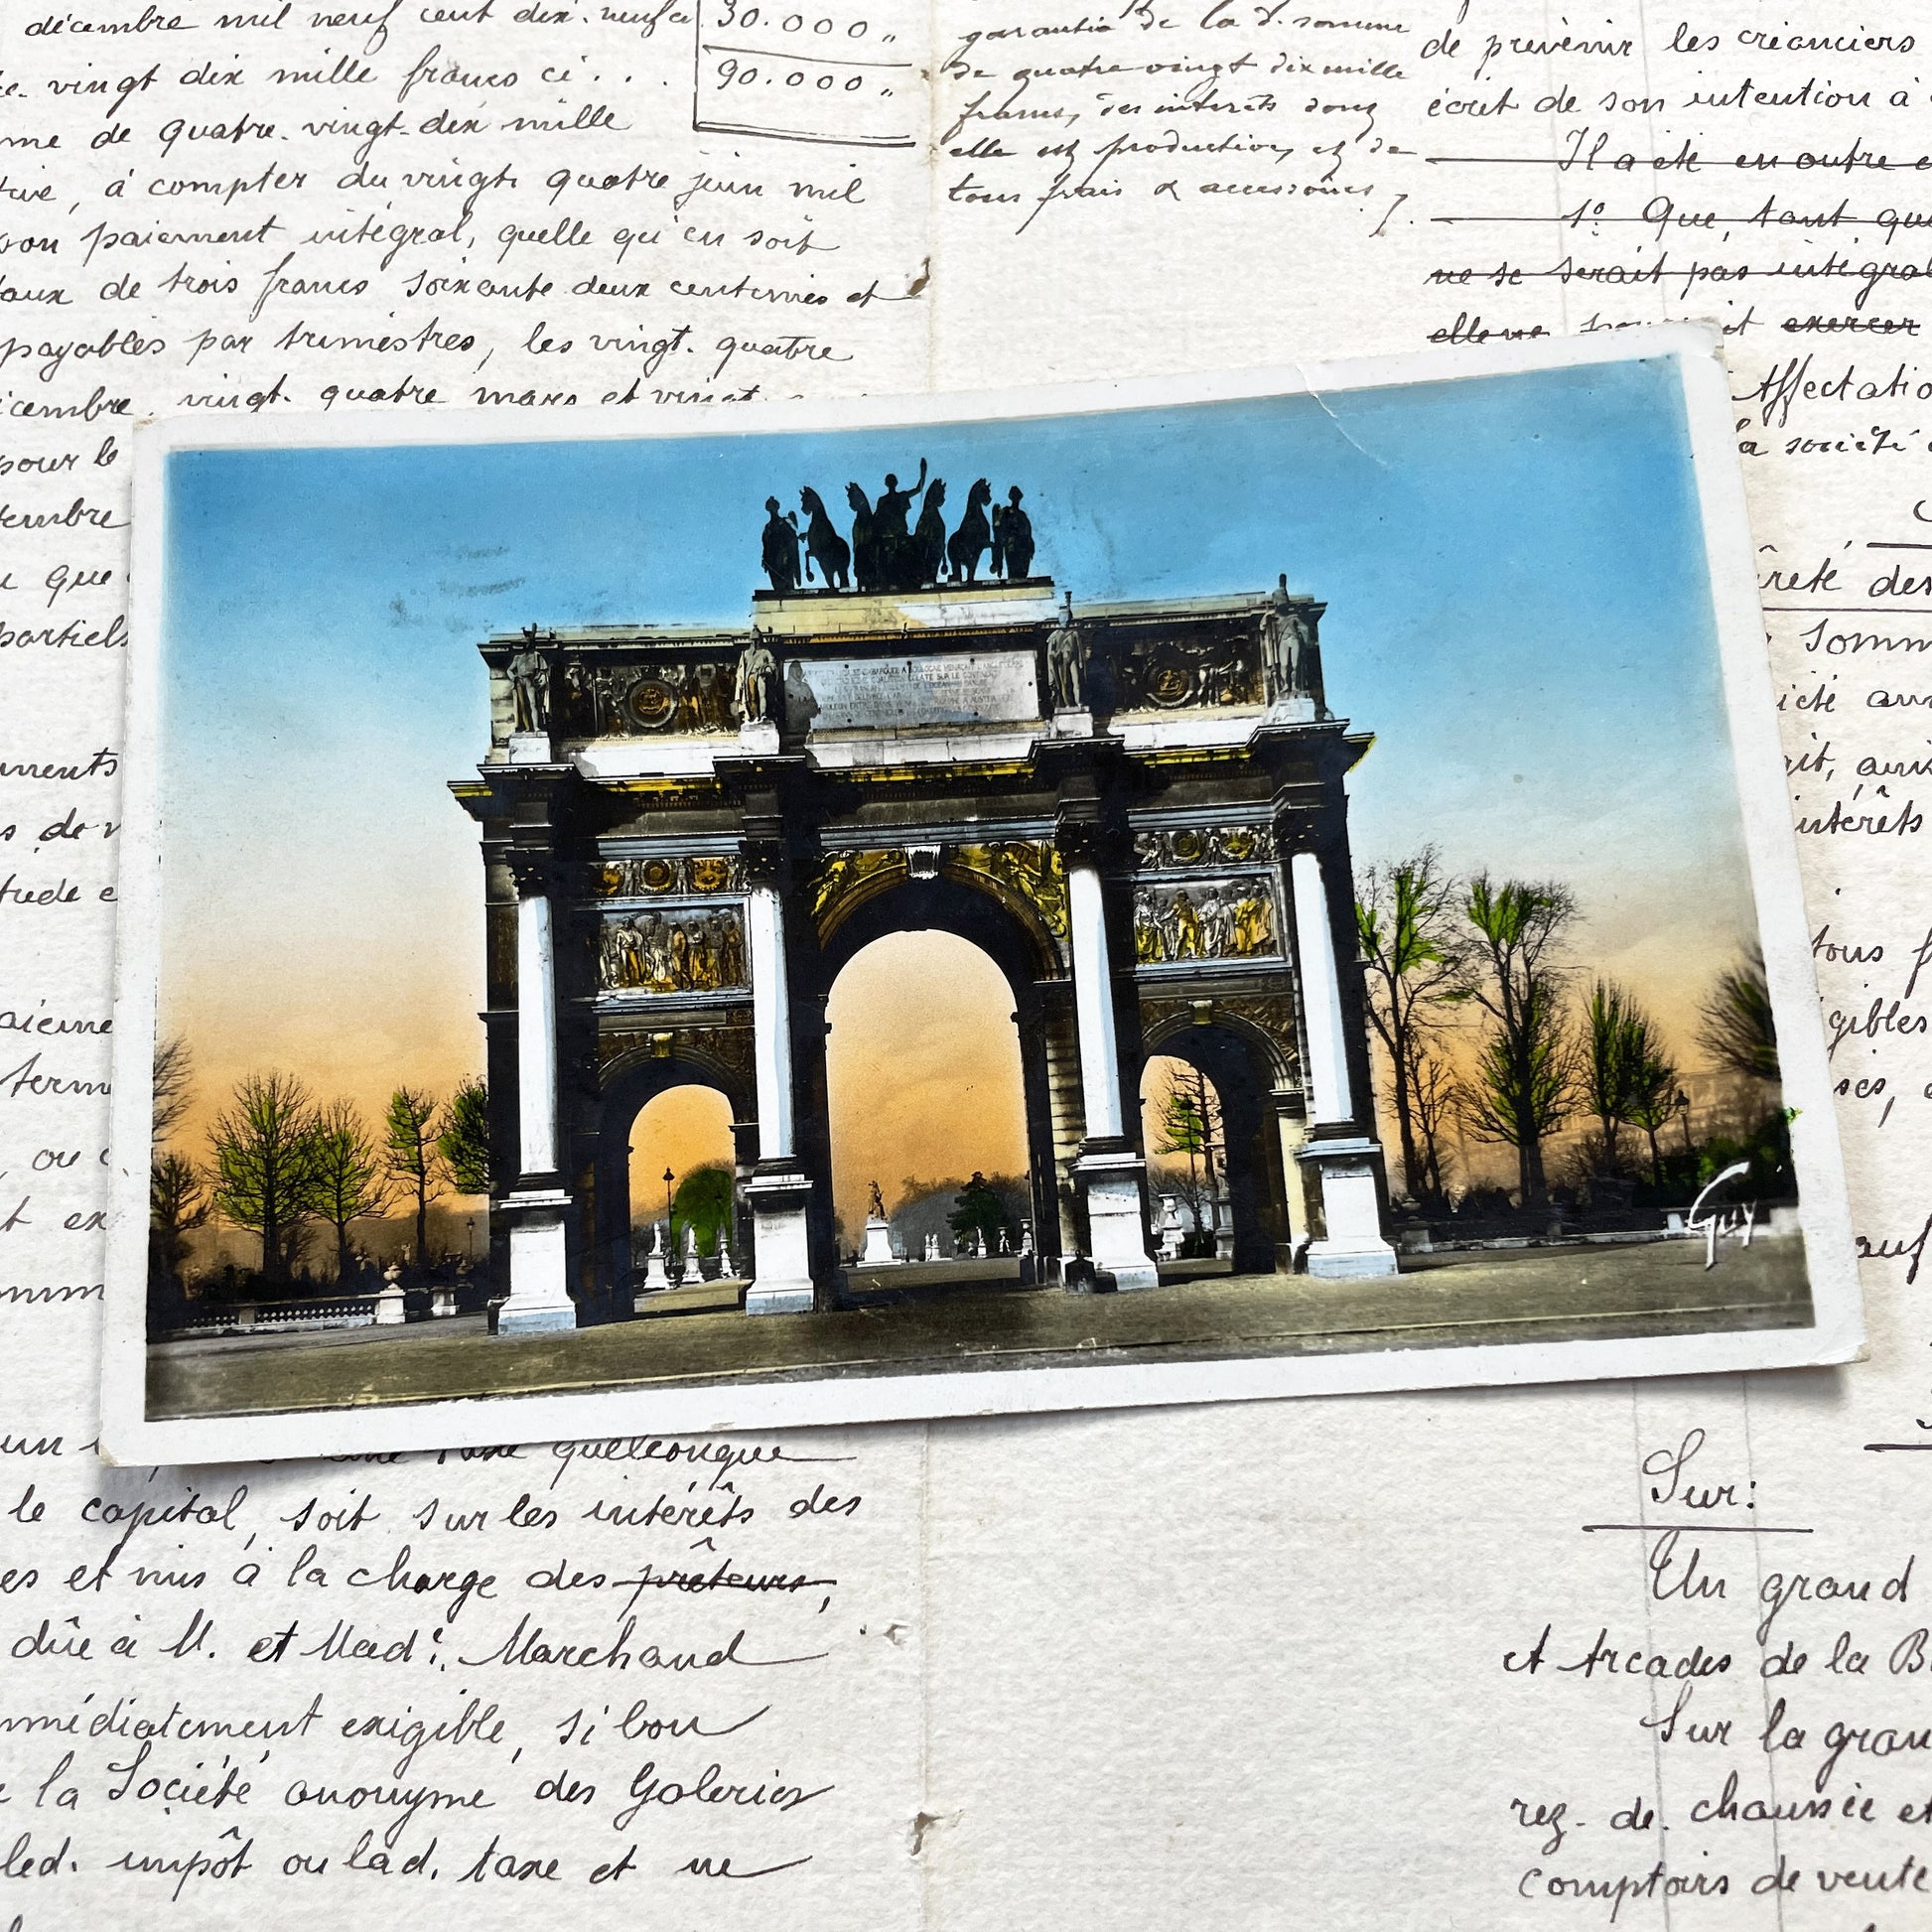 décembre mil neuf cent dix-neuf ci
30.000 "
vingt dix mille francs ci . . .
90.000 "
me de quatre-vingt-dix mille
à compter du vingt quatre juin mil
son paiement intégral, quelle qu'en soit
taux de trois francs soixante deux centimes et
payables par trimestres, les vingt-quatre
cembre, vingt-quatre mars et vingt
pour le
tembre
que
partiels
s de
tude e
aieme
terme
, ou
t ex
garantie de la d. somme
de quatre vingt dix mille
francs, des intérêts dont
elle est productive, et de
tous frais & accessoires /.
de prévenir les créanciers
écrit de son intention à
Il a été en outre c
1º Que, tant que
ne se serait pas intégral
elle ne pourrait exercer
Affectatio
a société
reté des
somm
iété
git,
intérêts
tous f
gibles
ses,
auf
NAPOLEON
Guy
un quelconque
le capital, soit sur les intérêts des
es et mis à la charge des prêteurs,
dûe à M. et Mad^e. Marchand
mmédiatement exigible, si bon
la Société anonyme des Galeries
led. impôt ou lad. taxe et ne
Sur:
Un grand
et Arcades de la B
Sur la gran
rez-de-chaussée et
comptoirs de vente